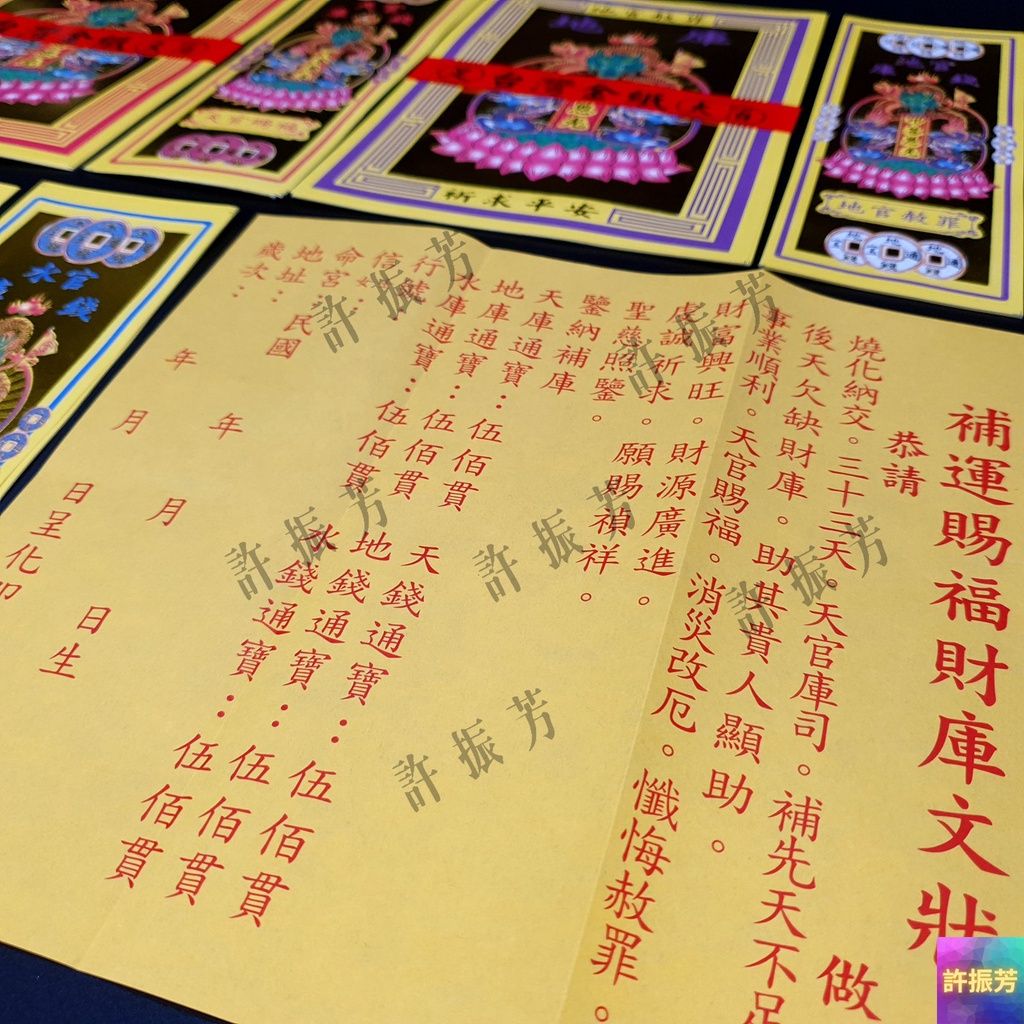 地庫
祈求平安
地官赦罪
天官賜福
水官錢
補運賜福財庫文狀
恭請
做
燒化納交。三十三天。天官庫司。補先天不足
後天欠缺財庫。助其貴人顯助。
事業順利。天官賜福。消災改厄。懺悔赦罪。
財富興旺。財源廣進。
虔誠祈求。願賜禎祥。
聖慈照鑒。
鑒納補庫
天庫通寶：伍佰貫 天錢通寶：伍佰貫
地庫通寶：伍佰貫 地錢通寶：伍佰貫
水庫通寶：伍佰貫 水錢通寶：伍佰貫
行號：
信女：
命宮：
地址：民國 年 月 日生
歲次： 年 月 日呈化叩
許振芳
許振芳
許振芳
許振芳
許振芳
許振芳
許振芳